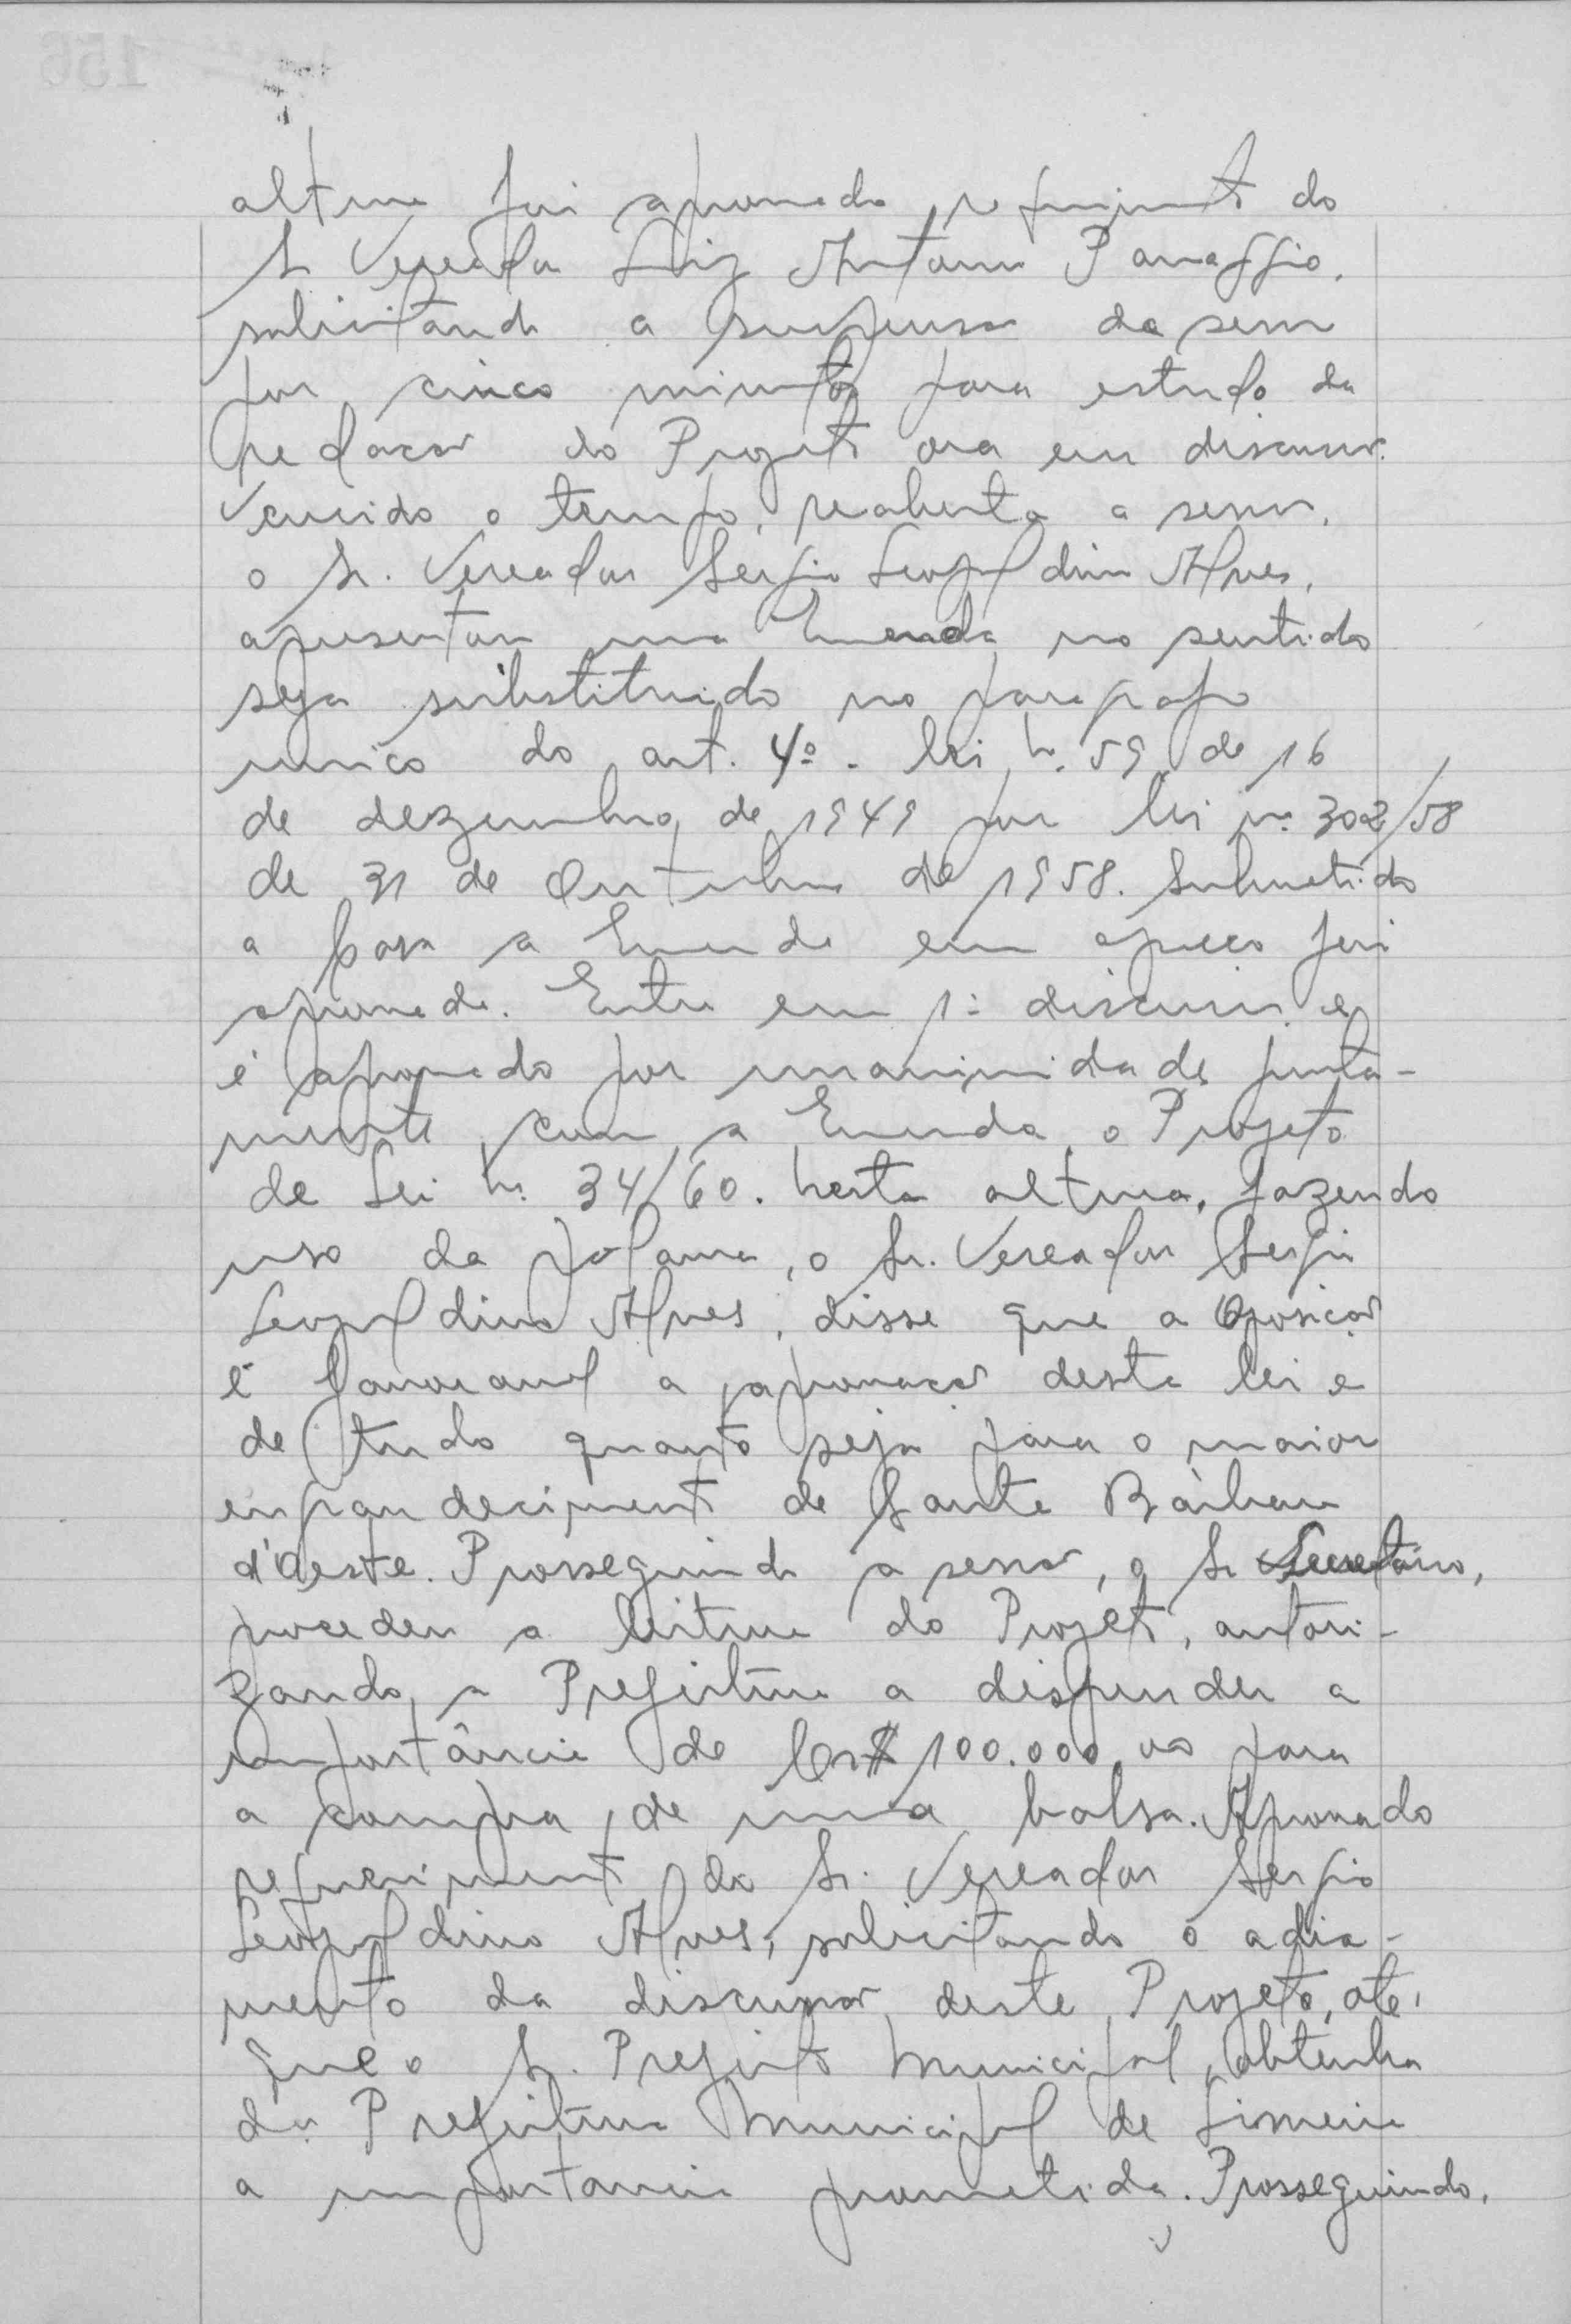 altura foi aprovado requerimento do
Sr Vereador Luiz Antonio Panaggio,
solicitando a suspensão da sessão
por cinco minutos para estudo da
redação do Projeto ora em discussão.
Vencido o tempo, reaberta a sessão,
o Sr. Vereador Sergio Leopoldino Alves,
apresentou uma Emenda no sentido
seja substituido no paragrafo
unico do art. 4º. lei n. 59 de 16
de dezembro de 1949 por lei nº 302/58
de 31 de Outubro de 1958. Submetido
a Casa a Emenda em apreço foi
aprovada. Entra em 1ª discussão e
é aprovado por unanimidade junta-
mente com a Emenda o Projeto
de Lei nº 34/60. Nesta altura, fazendo
uso da palavra, o Sr. Vereador Sergio
Leopoldino Alves, disse que a Oposição
é favoravel a aprovação desta lei e
de tudo quanto seja para o maior
engrandecimento de Santa Bárbara
d'Oeste. Prosseguindo a sessão, o Sr Secretário,
procedeu a leitura do Projeto, autori-
zando a Prefeitura a dispender a
importância de Cr$ 100.000,00 para
a compra de uma balsa. Aprovado
requerimento do Sr. Vereador Sergio
Leopoldino Alves, solicitando o adia-
mento da discussão deste Projeto, até
que o Sr. Prefeito Municipal, obtenha
da Prefeitura Municipal de Limeira
a importancia prometida. Prosseguindo,